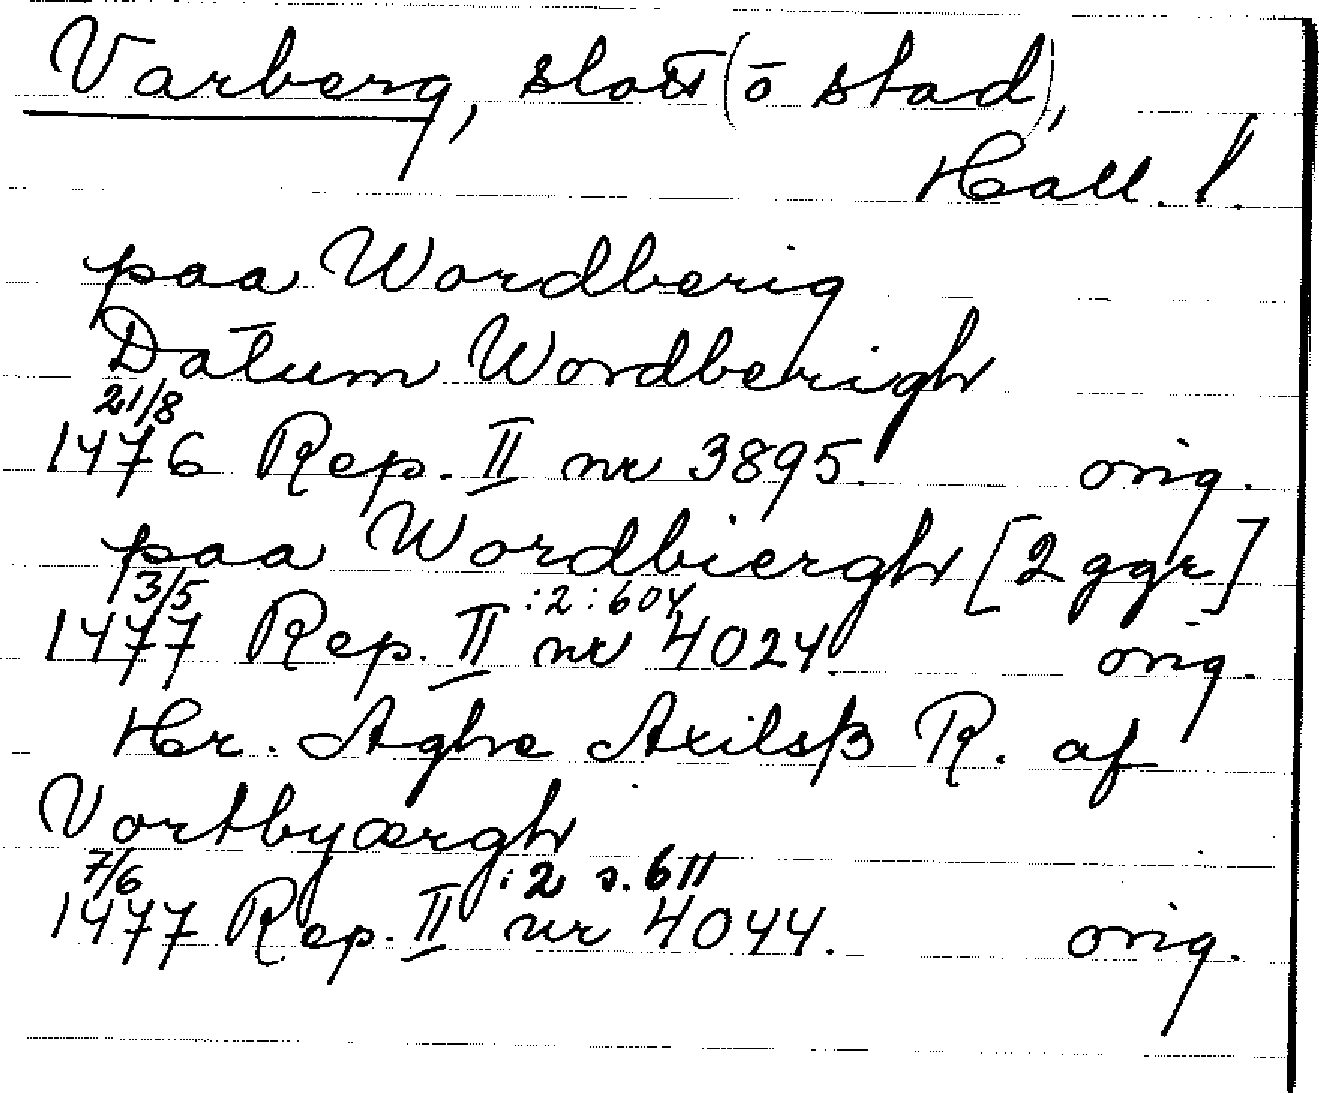 Varberg, slott (o stad),
Hall. l.
paa Wordberig
Datum Wordberigh
21/8
1476 Rep. II nr 3895. orig.
paa Wordbiergh [2 ggr]
13/5 :2:604
1477 Rep. II nr 4024. orig.
Hr. Aghe Axilsß R. af
Vortbyærgh
7/6 :2 s. 611
1477 Rep. II nr 4044. orig.